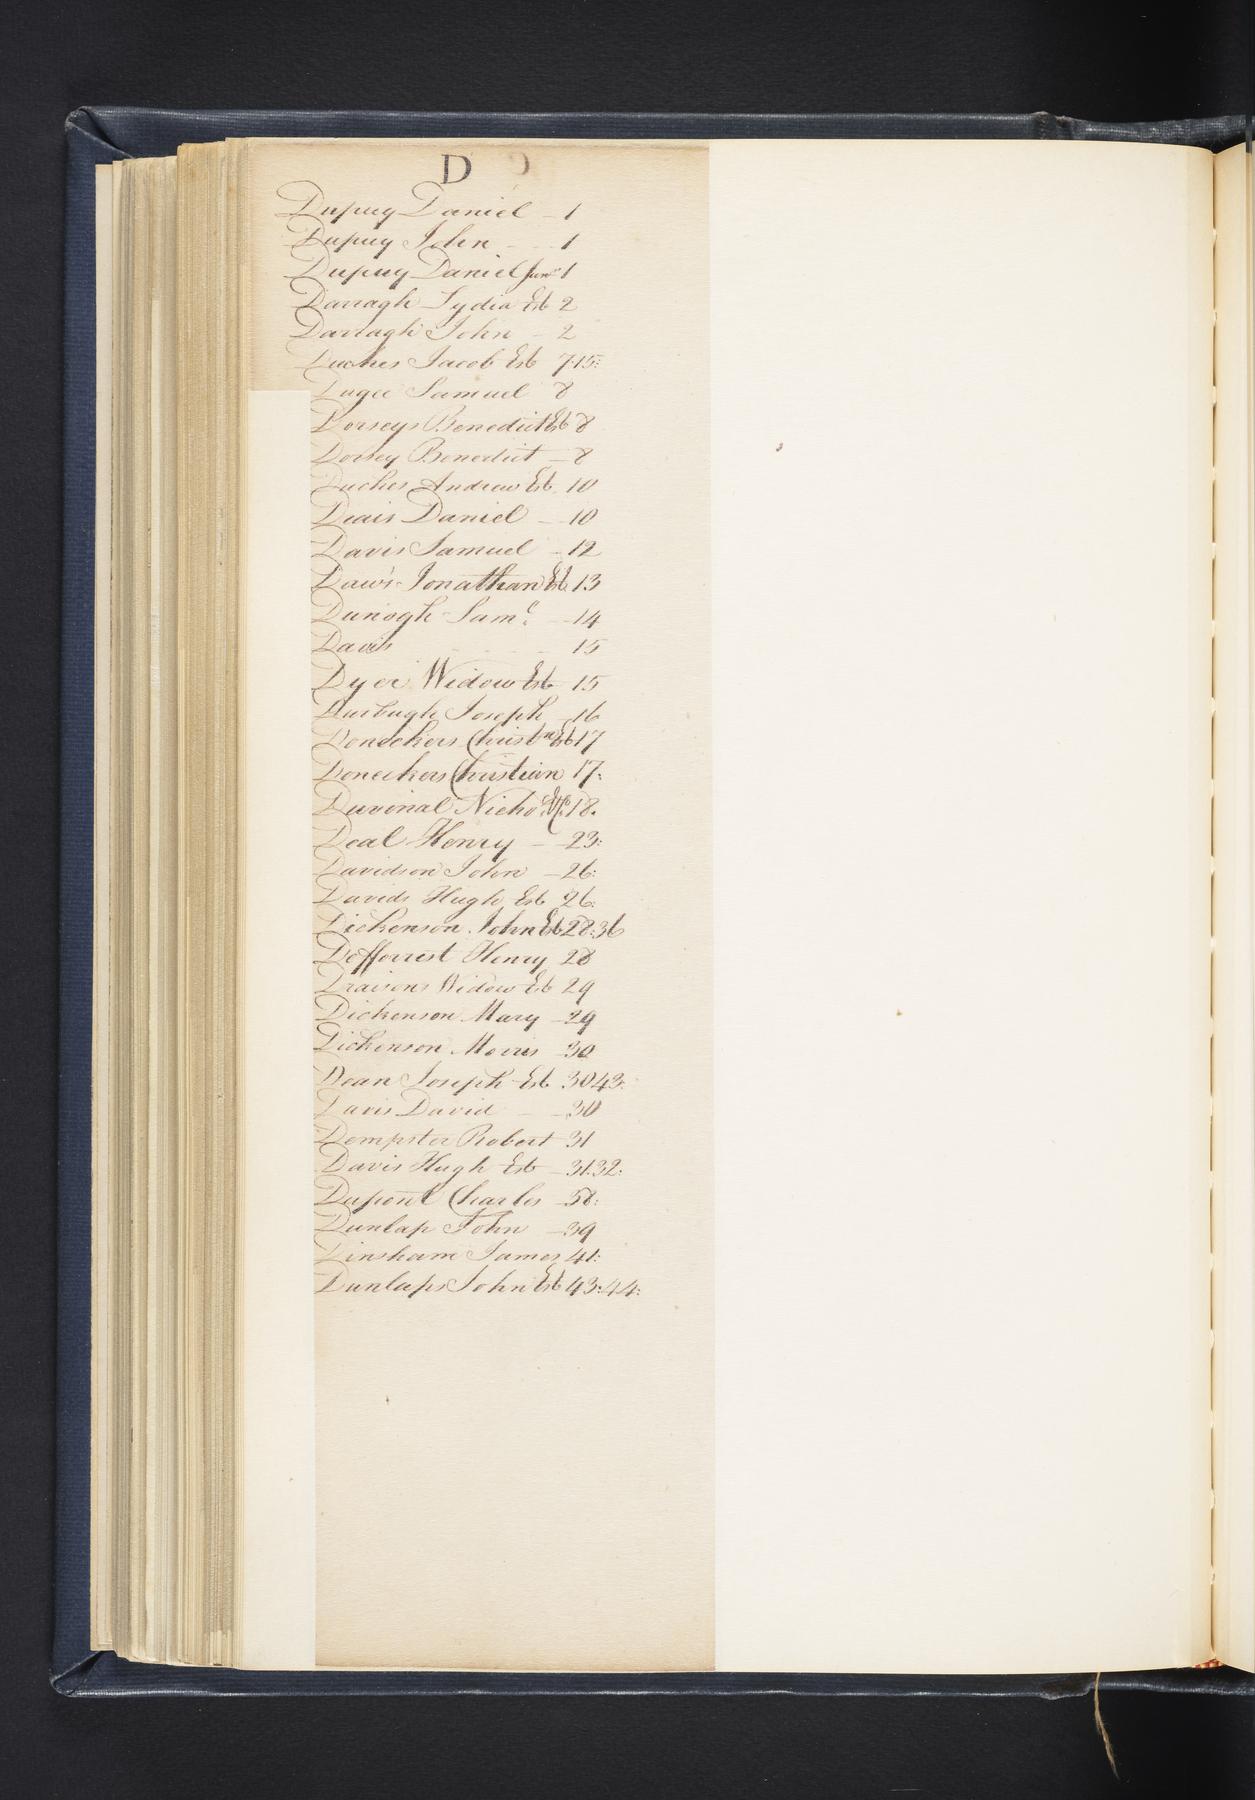 D
Dupuy Daniel - 1
Dupuy John - - 1
Dupuy Daniel Junr 1
Darragh Lydia Est 2
Darragh John - 2
Duches Jacob Est 7.15:
Dugee Samuel 8
Dorseys Benedict Est 8
Dorsey Benedict - 8
Duches Andrew Est 10
Deais Daniel - 10
Davis Samuel - 12
Daws Jonathan Est 13
Dunogh Saml. - 14
Davis - - - 15
Dyer Widow Est 15
Durbugh Joseph 16
Doneckers Christn Est 17
Doneckers Christian 17:
Duvinal Nicho 18.
Deal Henry - 23:
Davidson John - 26:
Davids Hugh Est 26:
Dickenson John Est 28:36
Defforrest Henry 28
Draisons Widow Est 29
Dickenson Mary - 29
Dickenson Morris - 30
Dean Joseph Est 30 43:
Davis David - - 30
Dempster Robert 31
Davis Hugh Est - 31.32:
Dupont Charles - 38:
Dunlap John - 39
Dinsham James 41:
Dunlaps John Est 43:44: